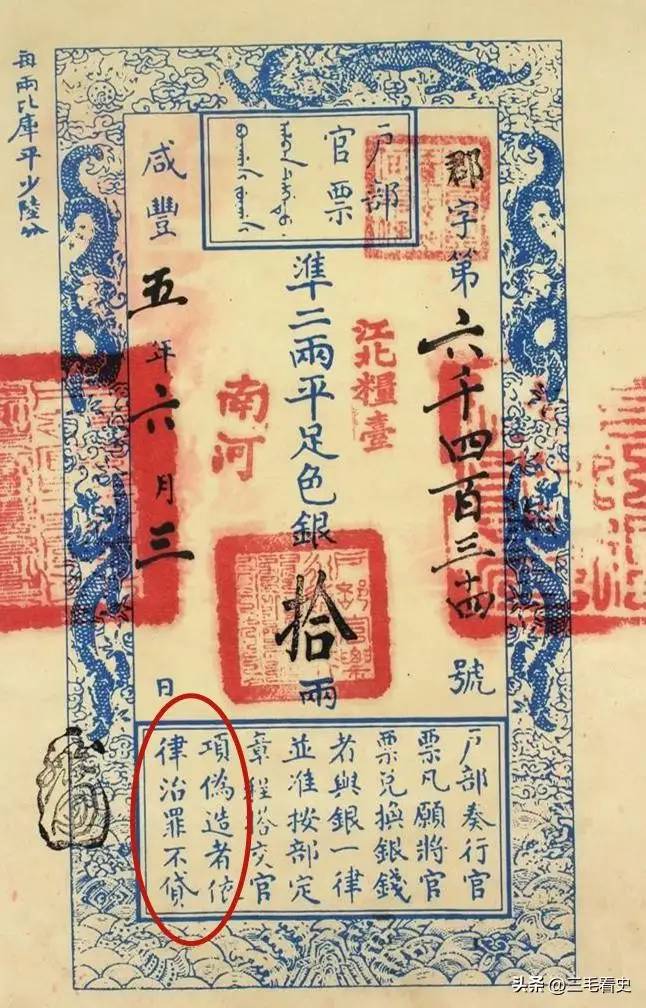 户部
官票
郡字第六千四百三十四號
江北糧臺
準二兩平足色銀拾兩
南河
咸豐五年六月三日
每兩比庫平少陸分
户部奏行官
票凡願將官
票兑換銀錢
者與銀一律
並准按部定
章程搭交官
項偽造者依
律治罪不貸
头条 @三毛看史